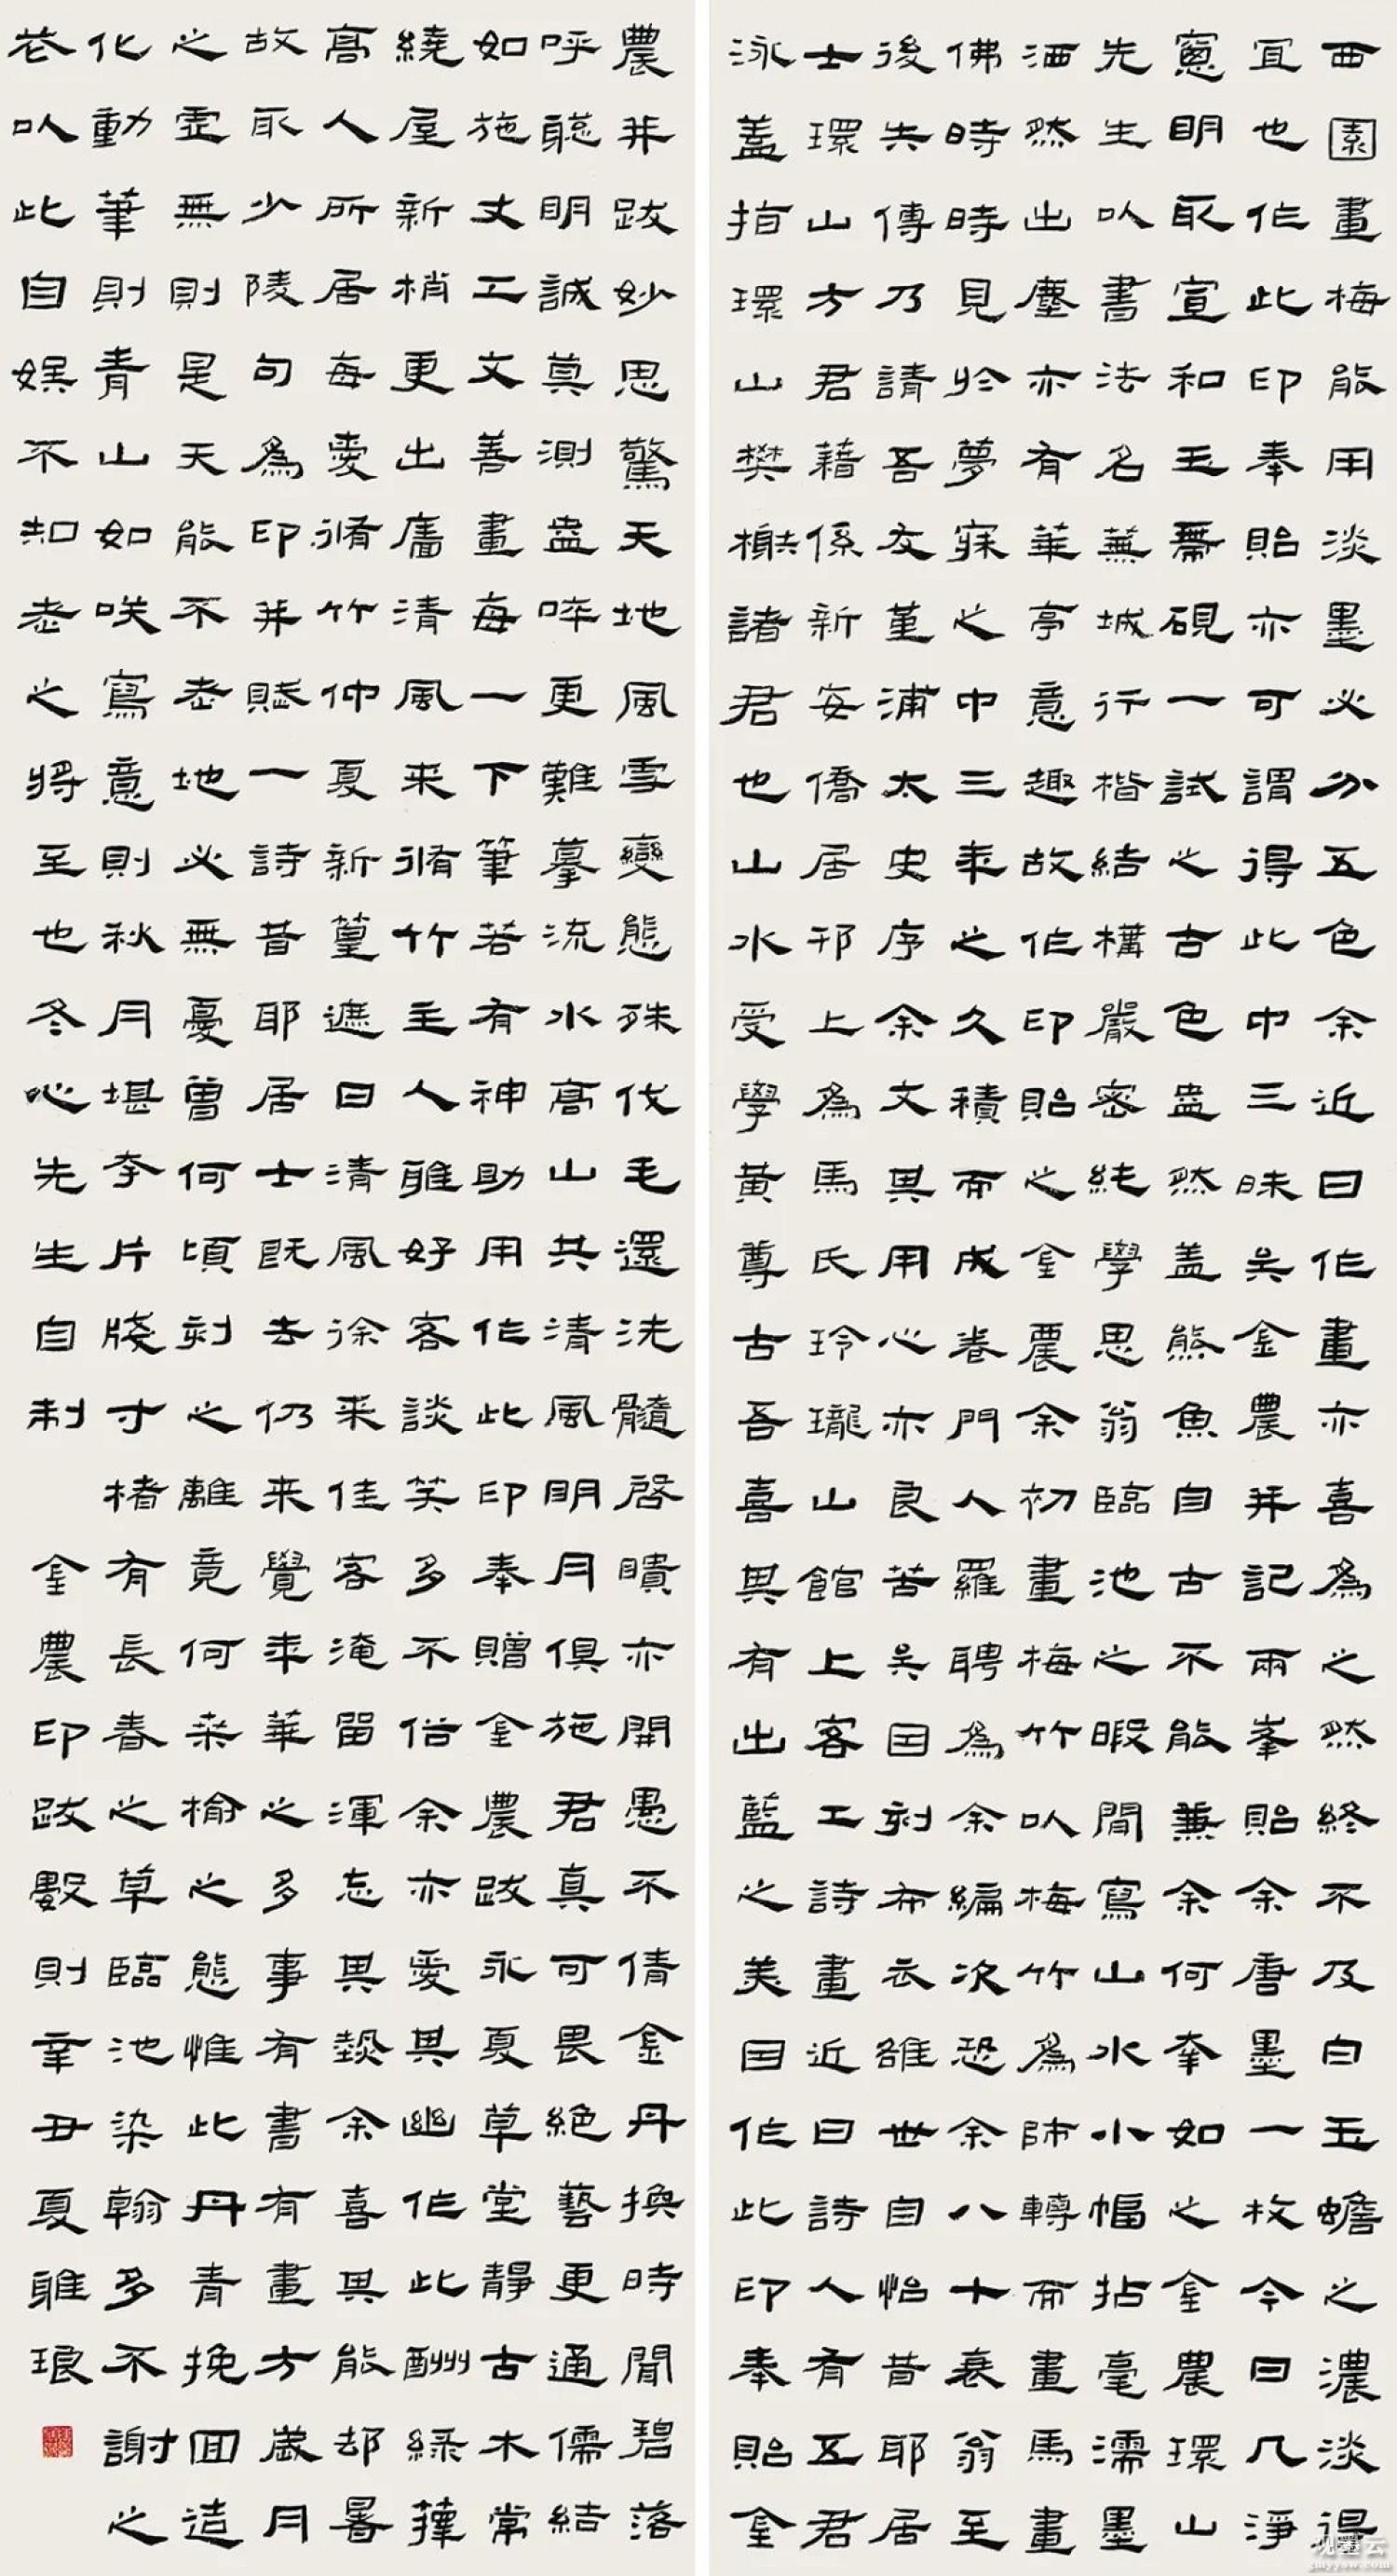 西園畫梅能用淡墨必分五色余近日作畫亦喜為之然終不及白玉蟾之濃淡得
宜也作此印奉貽亦可謂得此中三昧吴金農并記兩峯貽余唐墨一枚今日几淨
窻明取宣和玉鬲硯一試之古色盎然蓋熊魚自古不能兼余何幸如之金農環山
先生以書法名蕪城行楷結構嚴密純學思翁臨池之暇間寫山水小幅拈毫濡墨
洒然出塵亦有華亭意趣故作印貽之金農余初畫梅竹以梅竹為師轉而畫馬畫
佛時時見於夢寐之中三年之久積而成卷門人羅聘為余編次恐余八十衰翁至
後失傳乃請吾友堇浦太史序余文其用心亦良苦吴囙刻布衣雖世自怡昔耶居
士環山方君藉係新安僑居邗上為馬氏玲瓏山館上客工詩畫近日詩人有五君
泳蓋指環山樊榭諸君也山水受學黄尊古吾喜其有出藍之美囙作此印奉貽金
農并跋妙思驚天地風雪變態殊伐毛還洗髓啓聵亦開愚不倩金丹換時聞碧落
呼聽明誠莫測盎啐更難摹流水高山共清風明月俱施君真可畏絕藝更通儒結
如施丈工文善畫每一下筆若有神助用作此印奉贈金農跋永夏草堂靜古木常
繞屋新梢更出廧清風来脩竹主人雖好客談笑多不俗余亦愛其幽作此酬綠籜
高人所居每愛脩竹仲夏新篁遮日清風徐来佳客淹留渾忘其爇余喜其能却暑
故取少陵句為印并賦一詩昔耶居士既去仍来覺年華之多事有書有畫方歲月
之霊無則是天能不老地必無憂曾何頃刻之離竟何桑榆之態惟此丹青挽回造
化動筆則青山如咲寫意則秋月堪李片牋寸楮有長春之草臨池染翰多不謝之
花以此自娱不知老之將至也冬心先生自制 金農印跋數則辛丑夏雖琅